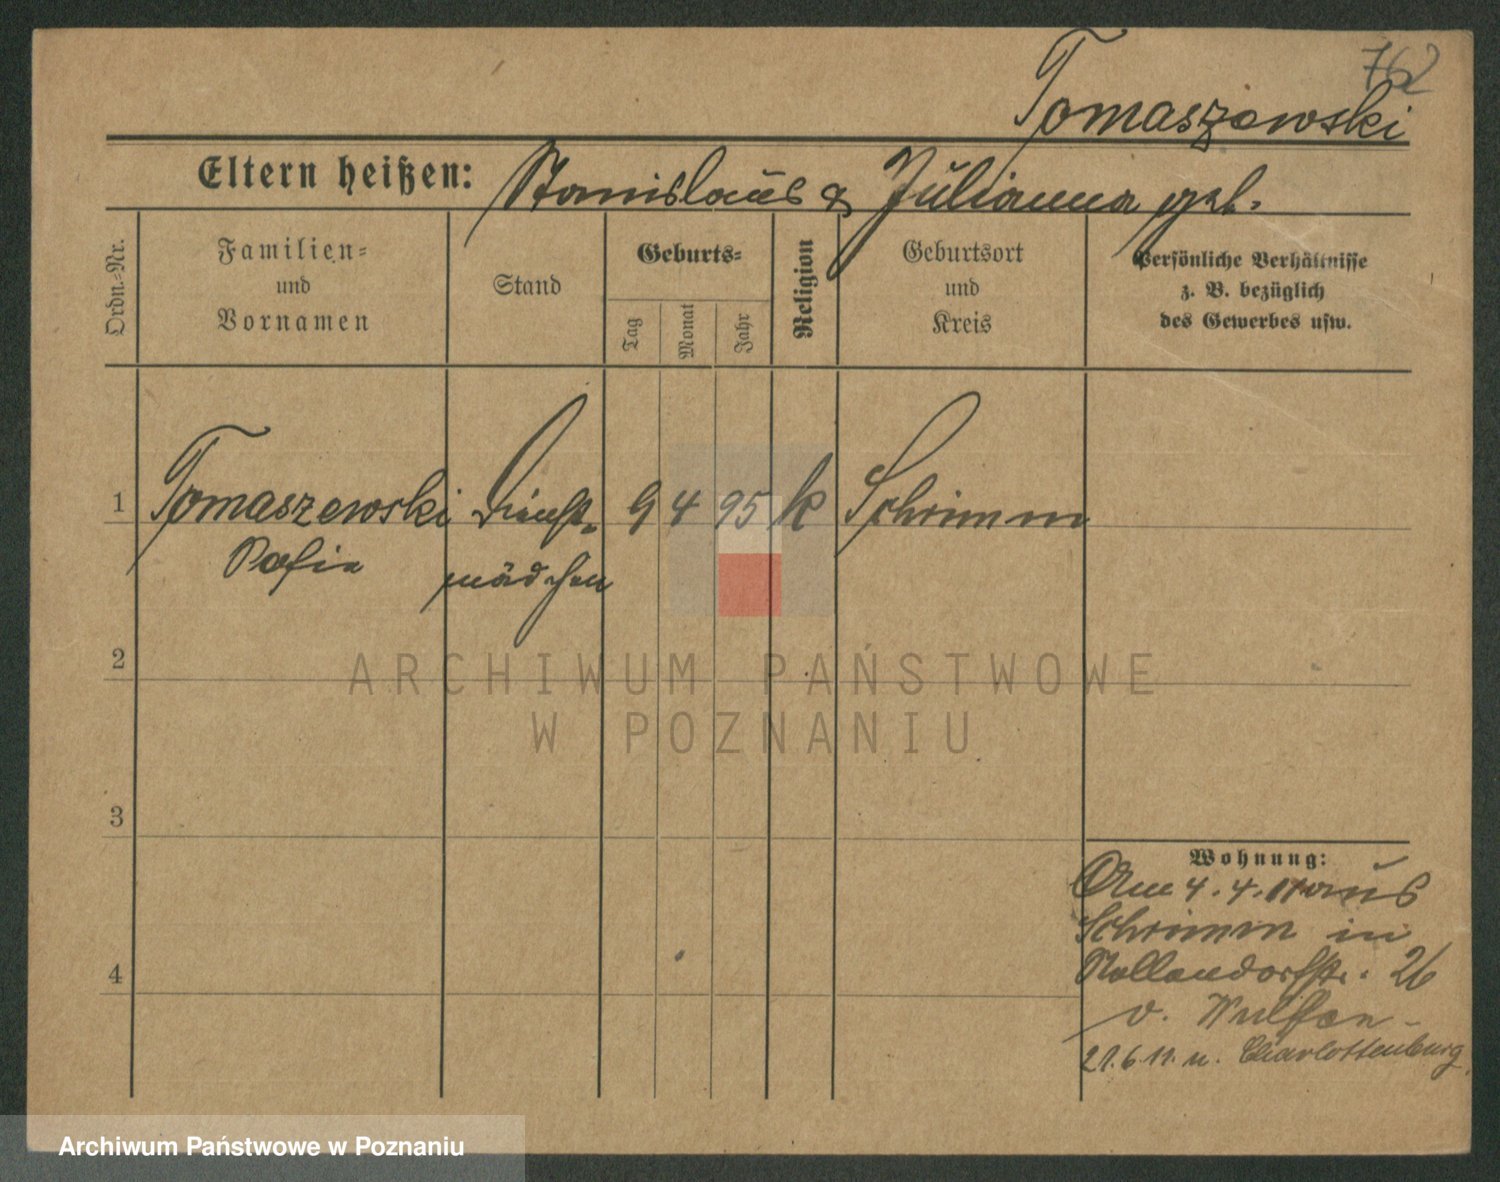 762
Tomaszewski
Eltern heißen: Stanislaus & Julianna geb.
Ordn.-Nr.
Familien-
und
Vornamen
Stand
Geburts-
Tag
Monat
Jahr
Religion
Geburtsort
und
Kreis
Persönliche Verhältnisse
z. B. bezüglich
des Gewerbes usw.
1 Tomaszewski Dienst- 9 4 95 k Schrimm
mädchen
2
3
4
Wohnung:
Am 4.4.11 aus
Schrimm in
Nollendorfstr. 26
v. Wulffen
21.6.11. n. Charlottenburg
ARCHIWUM PAŃSTWOWE
W POZNANIU
Archiwum Państwowe w Poznaniu